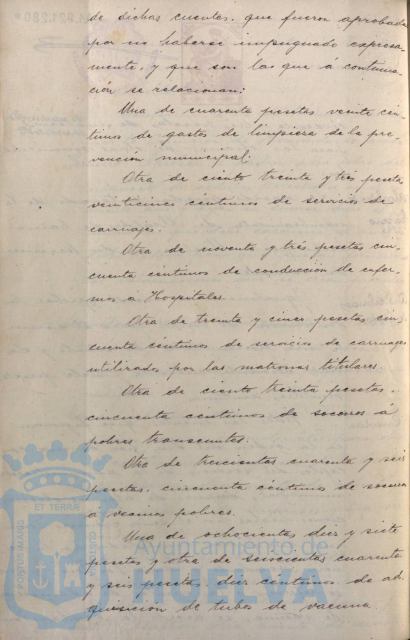 de dichas cuentas, que fueron aprobadas
por no haberse impugnado expresa-
mente, y que son las que á continua-
ción se relacionan:
Una de cuarenta pesetas veinte cén-
timos de gastos de limpieza de la pre-
vención municipal.
Otra de ciento treinta y tres pesetas
veinticinco céntimos de servicios de
carruajes.
Otra de noventa y tres pesetas cin-
cuenta céntimos de conducción de enfer-
mos á Hospitales.
Otra de treinta y cinco pesetas cin-
cuenta céntimos de servicios de carruajes
utilizados por las matronas titulares.
Otra de ciento treinta pesetas,
cincuenta céntimos de socorros á
pobres transeuntes.
Otra de trescientas cuarenta y seis
pesetas, cincuenta céntimos de socorros
á vecinos pobres.
Una de ochocientas diez y siete
pesetas y otra de seiscientas cuarenta
y seis pesetas, diez céntimos de ad-
quisición de tubos de vacuna.
PORTUS MARIS
ET TERRÆ
CUSTODIA
Ayuntamiento de
HUELVA